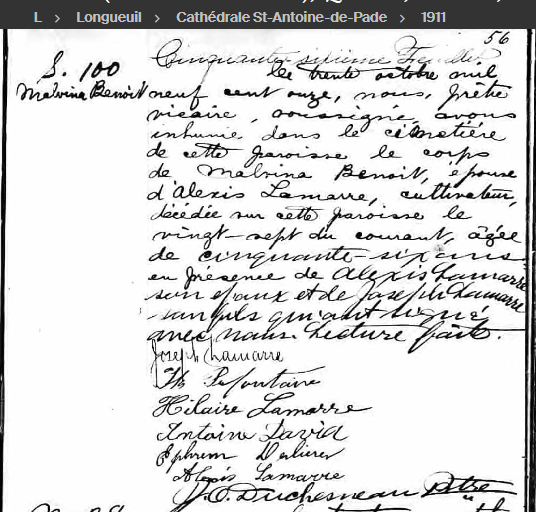 L > Longueuil > Cathédrale St-Antoine-de-Pade > 1911
56
Cinquante-sixième Feuillet
S. 100
Malvina Benoit
Le trente octobre mil
neuf cent onze, nous, prêtre
vicaire, soussigné, avons
inhumé dans le cimetière
de cette paroisse le corps
de Malvina Benoit, épouse
d'Alexis Lamarre, cultivateur,
décédée sur cette paroisse le
vingt-sept du courant, âgée
de cinquante-six ans
en présence de Alexis Lamarre
son époux et de Joseph Lamarre
son fils qui ont signé
avec nous. Lecture faite.
Joseph Lamarre
Hilaire Lamarre
Antoine David
Ephrem
Alexis Lamarre
J. O. Duchesneau Ptre